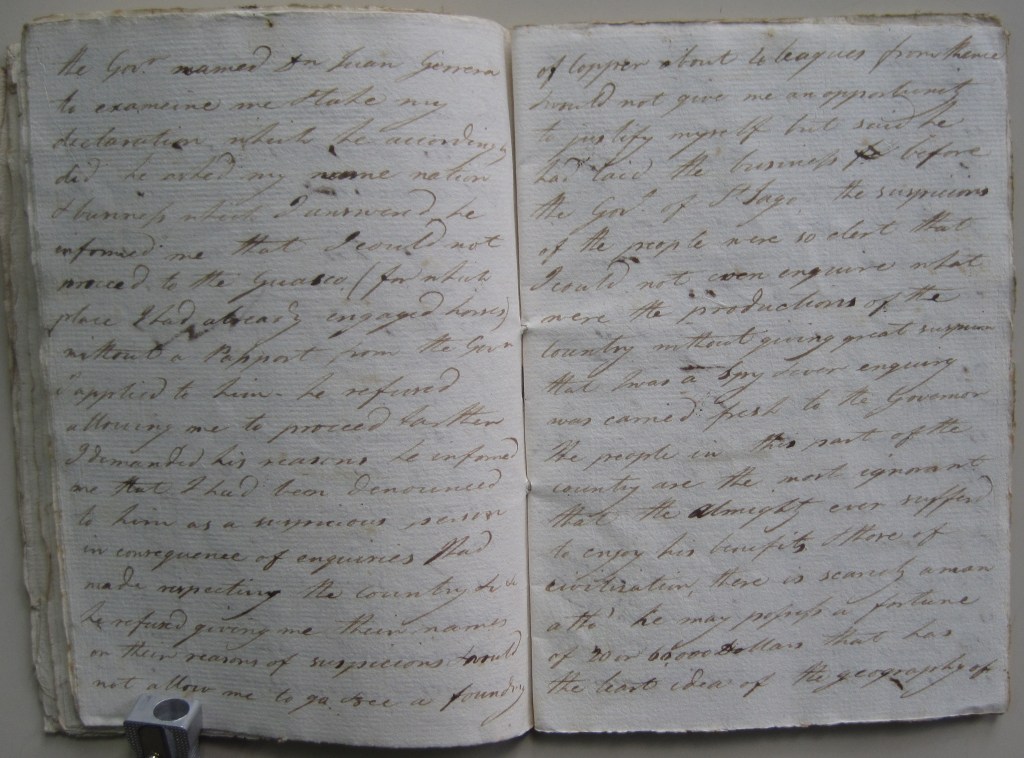 the Govr named Dn Juan Gerrera
to exameine me & take my
declaration which he accordingly
did he asked my name nation
& business which I answered he
informed me that I could not
proceed to the Guasco (for which
place I had already engaged horses)
without a Pasport from the Govn
I applied to him - he refused
allowing me to proceed farther
I demanded his reasons he informed
me that I had been denounced
to him as a suspicious person
in consequence of enquiries I had
made respecting the country &
he refused giving me their names
or their reasons of suspicions & would
not allow me to go & see a foundry
of Copper about 4 leagues from thence
& would not give me an opportunity
to justify myself but said he
had laid the business before
the Govr of St Jago the suspicions
of the people were so alert that
I could not even enquire what
were the productions of the
country without giving great suspicion
that I was a spy & ever enquiry
was carried fresh to the Governor
the people in this part of the
country are the most ignorant
that the almight ever suffer'd
to enjoy his benefits & those of
civilization, there is scarcely a man
altho' he may possess a fortune
of 20 or 60000 Dollars that has
the least idea of the geography of